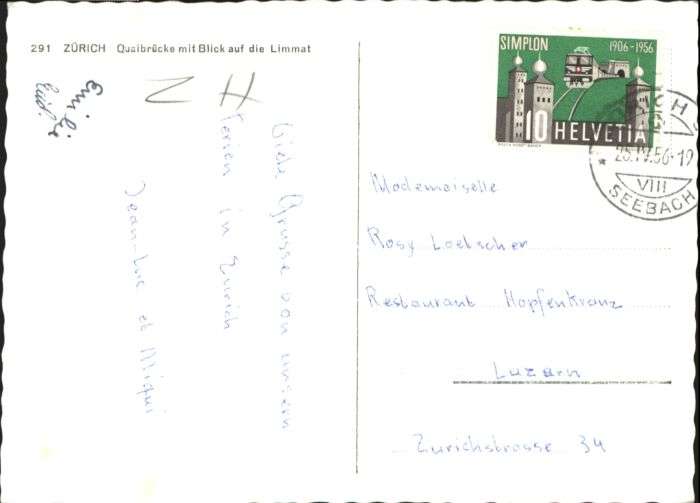 291 ZÜRICH Quaibrücke mit Blick auf die Limmat
SIMPLON 1906-1956
10 HELVETIA
ZÜRICH
26.IV.56-19
VIII
SEEBACH
Emilie
Liebe Grüsse von unsern
Ferien in Zürich
Jean-Luc et Miqui
Mademoiselle
Rosy Loetscher
Restaurant Hopfenkranz
Luzern
Zürichstrasse 34